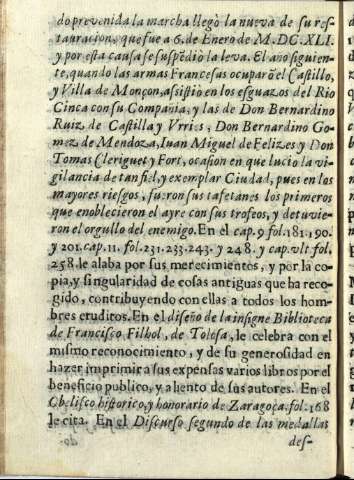 do prevenida la marcha llegò la nueva de su res-
tauracion, que fue a 6. de Enero de M.DC.XLI.
y por esta causa se suspẽdiò la leva. El año siguien-
te, quando las armas Francesas ocuparõ el Castillo,
y Villa de Monçon, asistiò en los esguazos del Rio
Cinca con su Compañia, y las de Don Bernardino
Ruiz de Castilla y Vrries, Don Bernardino Go-
mez de Mendoza, Iuan Miguel de Felizes y Don
Tomas Cleriguet y Fort, ocasion en que lucio la vi-
gilancia de tan fiel, y exemplar Ciudad, pues en los
mayores riesgos, fueron sus tafetanes los primeros
que enoblecieron el ayre con sus trofeos, y detuvie-
ron el orgullo del enemigo. En el cap. 9 fol. 181. 190.
y 201. cap. 11. fol. 231. 233. 243. y 248. y cap. vlt. fol.
258. le alaba por sus merecimientos, y por la co-
pia, y singularidad de cosas antiguas que ha reco-
gido, contribuyendo con ellas a todos los hom-
bres eruditos. En el diseño de la insigne Biblioteca
de Francisco Filhol, de Tolosa, le celebra con el
mismo reconocimiento, y de su generosidad en
hazer imprimir a sus expensas varios libros por el
beneficio publico, y aliento de sus autores. En el
Obelisco historico, y honorario de Zaragoça. fol. 168
le cita. En el Discurso segundo de las medallas
des-